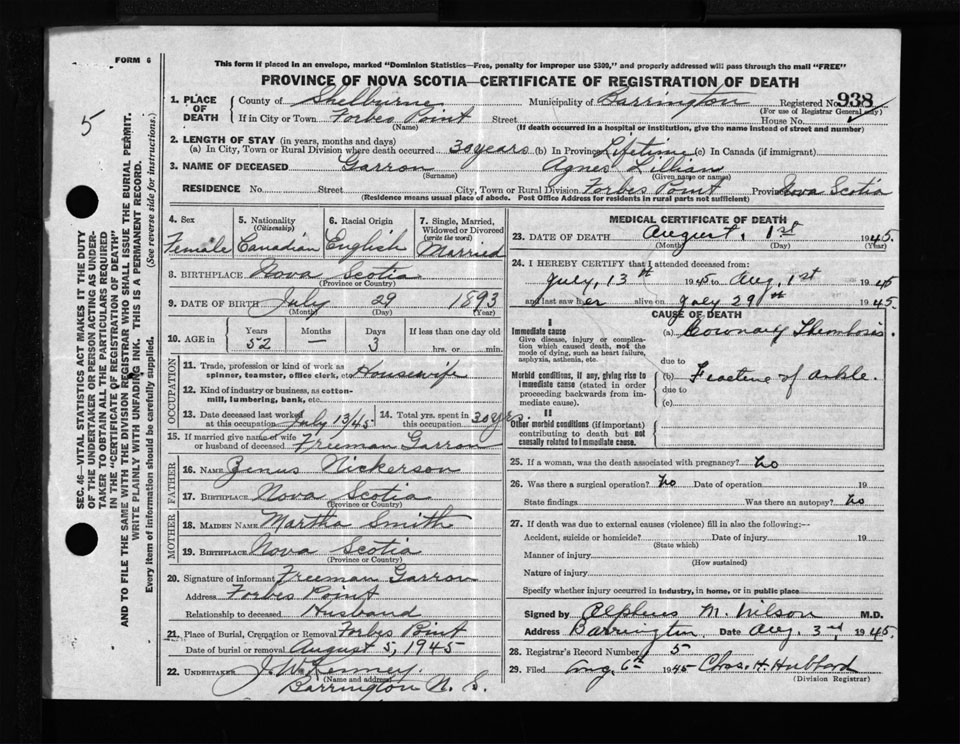 FORM 6
This form if placed in an envelope, marked "Dominion Statistics—Free, penalty for improper use $300," and properly addressed will pass through the mail "FREE"
PROVINCE OF NOVA SCOTIA—CERTIFICATE OF REGISTRATION OF DEATH
5
1. PLACE OF DEATH
County of Shelburne Municipality of Barrington Registered No. 938
(For use of Registrar General only)
If in City or Town Forbes Point Street House No.
(Name) (If death occurred in a hospital or institution, give the name instead of street and number)
2. LENGTH OF STAY (in years, months and days)
(a) In City, Town or Rural Division where death occurred 30 years (b) In Province Lifetime (c) In Canada (if immigrant)
3. NAME OF DECEASED Garron Agnes Lillian
(Surname) (Given name or names)
RESIDENCE No. Street City, Town or Rural Division Forbes Point Province Nova Scotia
(Residence means usual place of abode. Post Office Address for residents in rural parts not sufficient)
4. Sex
Female
5. Nationality
(Citizenship)
Canadian
6. Racial Origin
English
7. Single, Married, Widowed or Divorced
(write the word)
Married
8. BIRTHPLACE Nova Scotia
(Province or Country)
9. DATE OF BIRTH July 29 1893
(Month) (Day) (Year)
10. AGE in
Years Months Days If less than one day old
52 — 3 hrs. or min.
OCCUPATION
11. Trade, profession or kind of work as
spinner, teamster, office clerk, etc. Housewife
12. Kind of industry or business, as cotton-
mill, lumbering, bank, etc.
13. Date deceased last worked
at this occupation July 13/45
14. Total yrs. spent in
this occupation 30 yrs.
15. If married give name of wife
or husband of deceased Freeman Garron
FATHER
16. NAME Zenus Nickerson
17. BIRTHPLACE Nova Scotia
(Province or Country)
MOTHER
18. MAIDEN NAME Martha Smith
19. BIRTHPLACE Nova Scotia
(Province or Country)
20. Signature of informant Freeman Garron
Address Forbes Point
Relationship to deceased Husband
21. Place of Burial, Cremation or Removal Forbes Point
Date of burial or removal August 5, 1945
22. UNDERTAKER J. W. Kenney
(Name and address)
Barrington N. S.
MEDICAL CERTIFICATE OF DEATH
23. DATE OF DEATH August, 1st 1945.
(Month) (Day) (Year)
24. I HEREBY CERTIFY that I attended deceased from:
July, 13th 1945 to Aug, 1st 1945
and last saw her alive on July 29th 1945.
CAUSE OF DEATH
I
Immediate cause
Give disease, injury or complication which caused death, not the mode of dying, such as heart failure, asphyxia, asthenia, etc.
(a) Coronary Thrombosis
due to
Morbid conditions, if any, giving rise to immediate cause (stated in order proceeding backwards from immediate cause).
(b) Fracture of ankle.
due to
(c)
II
Other morbid conditions (if important) contributing to death but not causally related to immediate cause.
25. If a woman, was the death associated with pregnancy? no
26. Was there a surgical operation? no Date of operation 19
State findings Was there an autopsy? no
27. If death was due to external causes (violence) fill in also the following:—
Accident, suicide or homicide? Date of injury 19
(State which)
Manner of injury
(How sustained)
Nature of injury
Specify whether injury occurred in industry, in home, or in public place
Signed by Alphius M. Wilson M.D.
Address Barrington Date Aug. 3rd, 1945.
28. Registrar's Record Number 5
29. Filed Aug 6th 1945 Chas. H. Hubbard
(Division Registrar)
SEC. 46—VITAL STATISTICS ACT MAKES IT THE DUTY
OF THE UNDERTAKER OR PERSON ACTING AS UNDER-
TAKER TO OBTAIN ALL THE PARTICULARS REQUIRED
IN THE "CERTIFICATE OF REGISTRATION OF DEATH"
AND TO FILE THE SAME WITH THE DIVISION REGISTRAR WHO SHALL ISSUE THE BURIAL PERMIT.
WRITE PLAINLY WITH UNFADING INK. THIS IS A PERMANENT RECORD.
Every item of information should be carefully supplied. (See reverse side for instructions.)